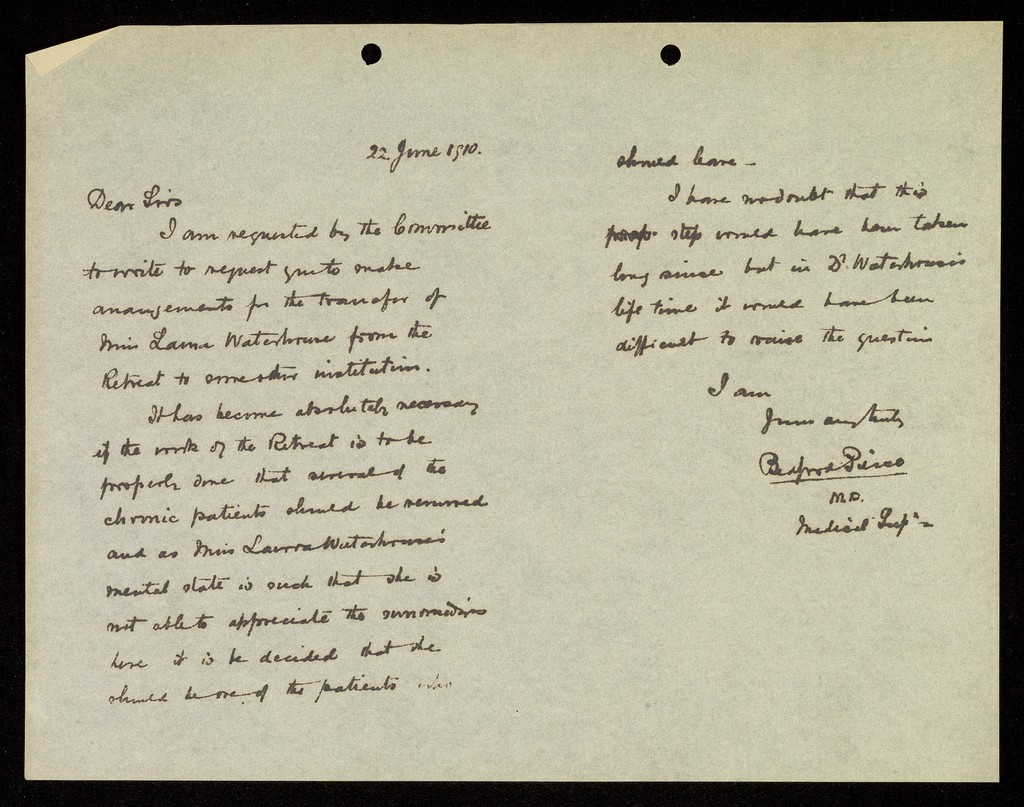 22 June 1910.
Dear Sirs
I am requested by the Committee
to write to request you to make
arrangements for the transfer of
Miss Laura Waterhouse from the
Retreat to some other institution.
It has become absolutely necessary
if the work of the Retreat is to be
properly done that several of the
chronic patients should be removed
and as Miss Laura Waterhouse's
mental state is such that she is
not able to appreciate the surroundings
here it is be decided that she
should be one of the patients who
should leave -
I have no doubt that this
step would have been taken
long since but in Dr. Waterhouse's
life time it would have been
difficult to raise the question
I am
Yours very truly
Bedford Pierce
M.D.
Medical Supt -